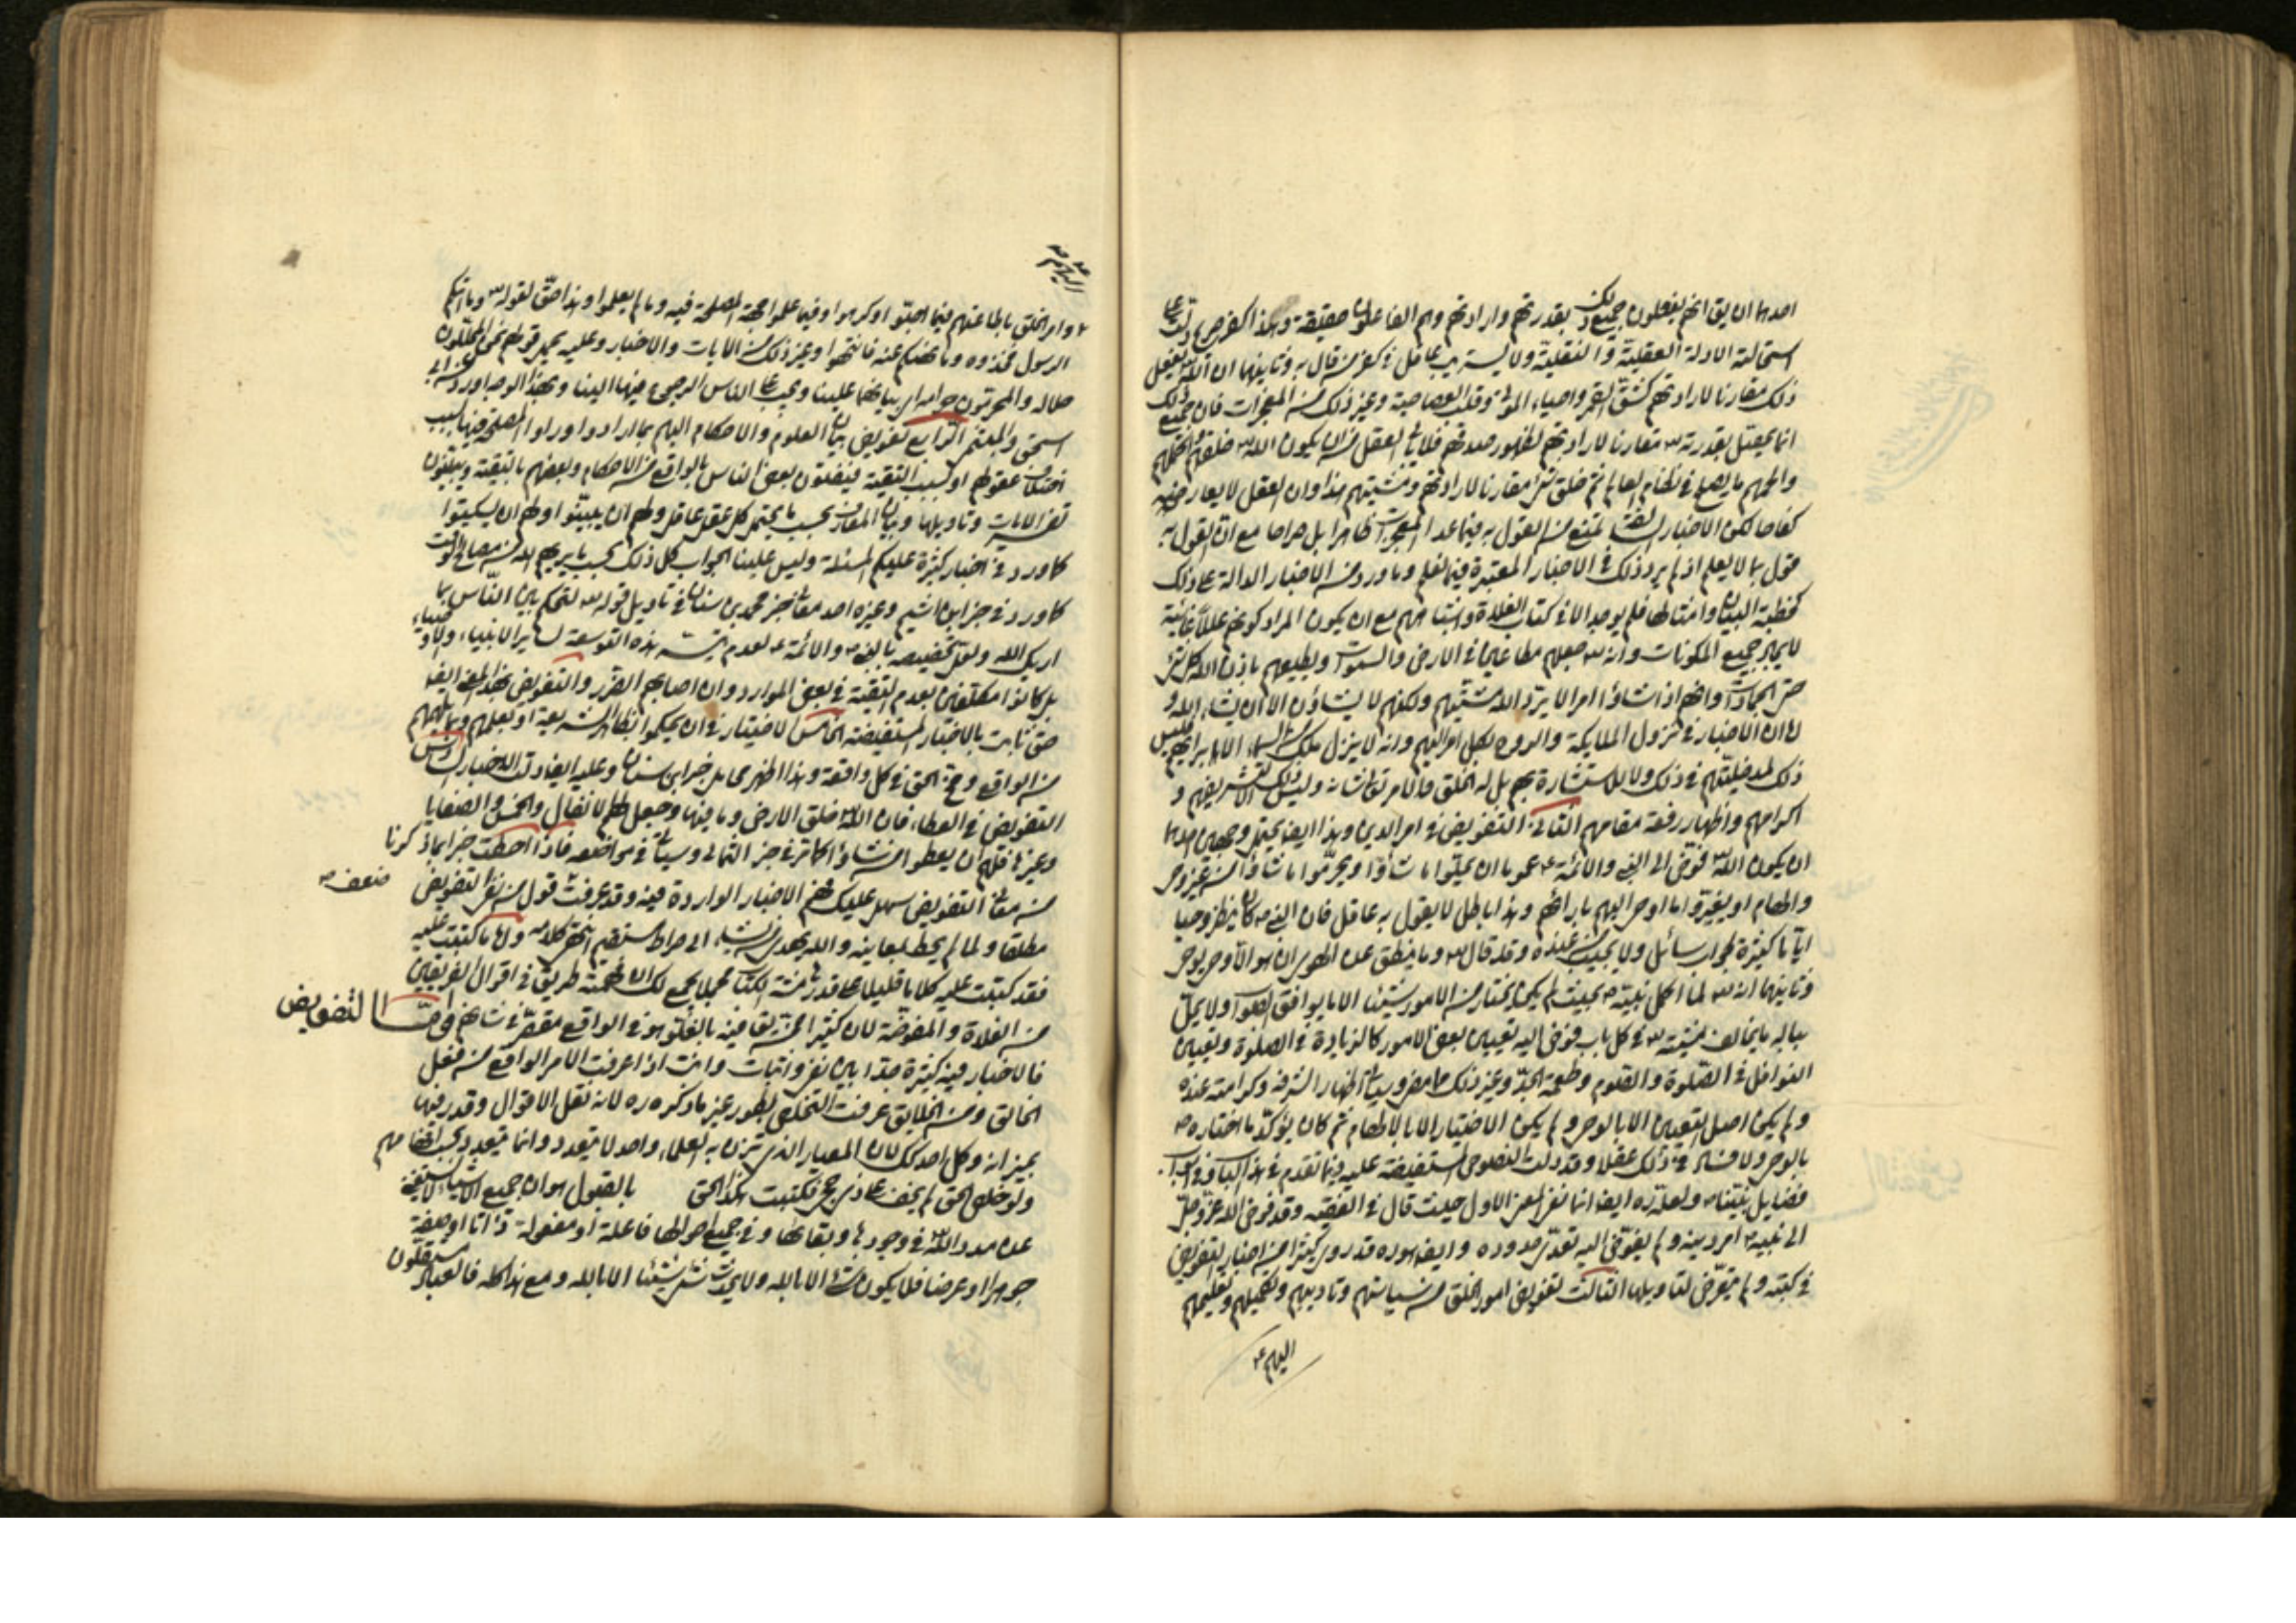 احدهما ان يق انهم يفعلون جميع ذلك بقدرتهم وارادتهم وهم الفاعلون حقيقة وهذا كفر صريح دلت على
استحالته الادلة العقلية والنقلية ولا يستريب عاقل في كفر من قال به وثانيهما ان الله تع يفعل
ذلك مقارنا لارادتهم كشق القمر واحياء الموتى وقلب العصا حية وغير ذلك من المعجزات فان جميع ذلك
انما يحصل بقدرته تع مقارنا لارادتهم لظهور صدقهم فلا يأبى العقل من ان يكون الله تع خلقهم واكملهم
والهمهم ما يصلح في نظام العالم ثم خلق كل شئ مقارنا لارادتهم ومشيتهم وهذا وان العقل لا يعارضه
كفاحا لكن الاخبار السالفة تمنع من القول به فيما عدا المعجزات ظاهرا بل صراحا مع ان القول به
قول بما لا يعلم اذ لم يرد ذلك في الاخبار المعتبرة فيما نعلم وما ورد من الاخبار الدالة على ذلك
كخطبة البيان وامثالها فلم يوجد الا في كتب الغلاة واشباههم مع ان يكون المراد كونهم عللا غائية
لايجاد جميع المكونات وانه تع جعلهم مطاعين في الارض والسموات ويطيعهم باذن الله كل شئ
حتى الجمادات وانهم اذا شاؤا امرا لا يرد الله مشيتهم ولكنهم لا يشاؤن الا ان يشاء الله و
اما ان الاخبار في نزول الملائكة والروح لكل امر اليهم وانه لا ينزل ملك من السماء الا بدأ بهم فليس
ذلك لمدخليتهم في ذلك ولا للاستشارة بهم بل له الخلق والامر تع شانه وليس ذلك الا لتشريفهم و
اكرامهم واظهار رفعة مقامهم الثاني التفويض في امر الدين وهذا ايضا يحتمل وجهين احدهما
ان يكون الله تع فوض الى النبي والائمة ع عموما ان يحلوا ما شاؤا ويحرموا ما شاؤا من غير وحي
والهام او يغيروا ما اوحي اليهم بارائهم وهذا باطل لا يقول به عاقل فان النبي ص كان ينتظر الوحي
اياما كثيرة لجواب سائل ولا يجيب من عنده وقد قال تع وما ينطق عن الهوى ان هو الا وحي يوحى
وثانيهما انه تع لما اكمل نبيه ص بحيث لم يكن يختار من الامور شيئا الا ما يوافق الصواب ولا يحل
بباله ما يخالف مشيته تع في كل باب فوض اليه تعيين بعض الامور كالزيادة في الصلوة وتعيين
النوافل في الصلوة والصوم وطعمة الجد وغير ذلك مما مضى وسيأتي اظهارا لشرفه وكرامته عنده
ولم يكن اصل التعيين الا بالوحي ولم يكن الاختيار الا بالالهام ثم كان يؤكد ما اختاره ص
بالوحي ولا فساد في ذلك عقلا وقد دلت النصوص المستفيضة عليه فيما تقدم في هذا الباب وفي ابواب
فضايل نبينا ص ولعله ره ايضا انما نفى المعنى الاول حيث قال في الفقيه وقد فوض الله عز وجل
الى نبيه ص امر دينه ولم يفوض اليه تعدي حدوده وايضا هو ره قد روى كثيرا من اخبار التفويض
في كتبه ولم يتعرض لتأويلها الثالث تفويض امور الخلق من سياستهم وتأديبهم وتكميلهم وتعليمهم
اليهم ع
اليهم ع
وامر الخلق باطاعتهم فيما احبوا او كرهوا وفيما علموا جهة المصلحة فيه وما لم يعلموا وهذا حق لقوله تع وما اتيكم
الرسول فخذوه وما نهيكم عنه فانتهوا وغير ذلك من الايات والاخبار وعليه يحمل قولهم نحن المحللون
حلاله والمحرمون حرامه اي بيانهما علينا ويجب على الناس الرجوع فيهما الينا وبهذا الوجه اورد خبر ابي
اسحق والميثمي الرابع تفويض بيان العلوم والاحكام اليهم بما ارادوا وراوا المصلحة فيها بسبب
اختلاف عقولهم او بسبب التقية فيفتون بعض الناس بالواقع من الاحكام وبعضهم بالتقية ويبينون
تفسير الايات وتأويلها وبيان المعارف بحسب ما يحتمل كل عقل عاقل ولهم ان يبينوا ولهم ان يسكتوا
كما ورد في اخبار كثيرة عليكم المسئلة وليس علينا الجواب كل ذلك بحسب ما يريهم الله من مصالح الوقت
كما ورد في خبر ابن اشيم وغيره احد معاني خبر محمد بن سنان في تأويل قوله تع لتحكم بين الناس بما
اريك الله ولعل تخصيصه بالنبي ص والائمة ع لعدم تيسر هذه التوسعة لساير الانبياء والاوصياء
بل كانوا مكلفين بعدم التقية في بعض الموارد وان اصابهم الضرر والتفويض بهذا المعنى ايضا
حق ثابت بالاخبار المستفيضة الخامس الاختيار في ان يحكموا بظاهر الشريعة او بعلمهم وبما يلهمهم
من الواقع ومخ الحق في كل واقعة وهذا اظهر محامل خبر ابن سنان وعليه ايضا دلت الاخبار السادس
التفويض في العطاء فان الله تع خلق الارض وما فيها وجعل لهم الانفال والخمس والصفايا
وغيرها فلهم ان يعطوا من شاؤا كما مر في خبر الثمالي وسيأتي في مواضعه فاذا احطت خبرا بما ذكرنا
من معاني التفويض سهل عليك فهم الاخبار الواردة فيه وقد عرفت ضعف قول من نفى التفويض
مطلقا ولما لم يحط بمعانيه والله يهدي من يشاء الى صراط مستقيم انتهى كلامه ولما كتبت عليه
فقد كتبت عليه كلاما قليلا على قدر هامش الكتاب مجملا يجمع لك ان فهمته طريق في اقوال الفريقين
من الغلاة والمفوضة لان كثيرا ممن يق فيه بالغلو هو في الواقع مقصر في شانهم اما التفويض
فالاخبار فيه كثيرة جدا بين نفي واثبات وانت اذا عرفت الامر الواقع من فعل
الخالق ومن الخلايق عرفت التخلص بطور غير ما ذكره ره لانه نقل الاقوال وقدرها
بميزانه وكل احد كك لان المعيار الذي تزن به العلماء واحد لا يتعدد وانما يتعدد بحسب افهامهم
ولو خلص الحق لم يخف على ذي حجى فكتبت هكذا الحق بالقبول هو ان جميع الاشياء لا تستغني
عن مدد الله تع في وجودها وبقائها وفي جميع احوالها فاعلة او مفعولة ذاتا او صفة
جوهرا او عرضا فلا يكون شئ الا بالله ولا يحدث شئ شيئا الا بالله ومع هذا كله فالعباد مستقلون